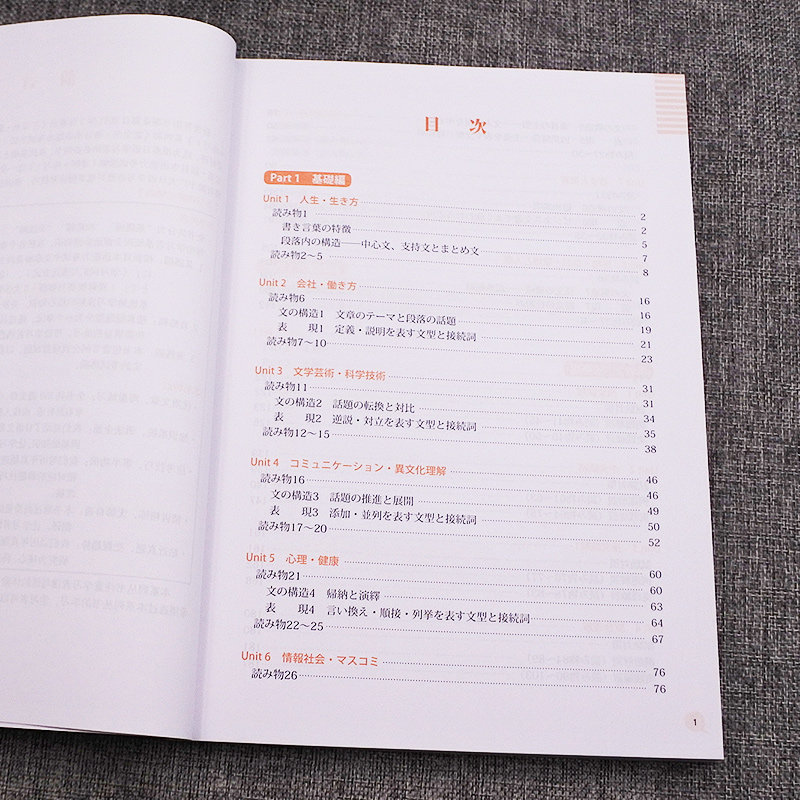 目 次
Part 1 基礎編
Unit 1 人生・生き方 2
読み物1 2
書き言葉の特徴 5
段落内の構造——中心文、支持文とまとめ文 7
読み物2～5 8
Unit 2 会社・働き方 16
読み物6 16
文の構造1 文章のテーマと段落の話題 19
表 現1 定義・説明を表す文型と接続詞 21
読み物7～10 23
Unit 3 文学芸術・科学技術 31
読み物11 31
文の構造2 話題の転換と対比 34
表 現2 逆説・対立を表す文型と接続詞 35
読み物12～15 38
Unit 4 コミュニケーション・異文化理解 46
読み物16 46
文の構造3 話題の推進と展開 49
表 現3 添加・並列を表す文型と接続詞 50
読み物17～20 52
Unit 5 心理・健康 60
読み物21 60
文の構造4 帰納と演繹 63
表 現4 言い換え・順接・列挙を表す文型と接続詞 64
読み物22～25 67
Unit 6 情報社会・マスコミ 76
読み物26 76
1